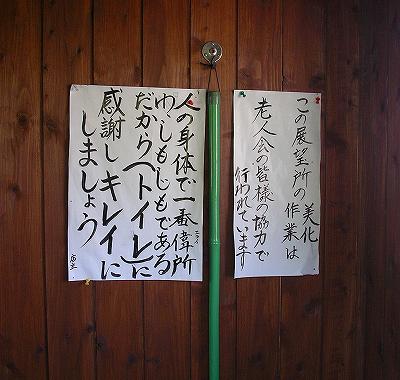 この展望所の美化
作業は
老人会の皆様の協力で
行われています
人の身体で一番偉所
わ、しもじもである
だから(トイレ)に
感謝しキレイに
しましょう
店主